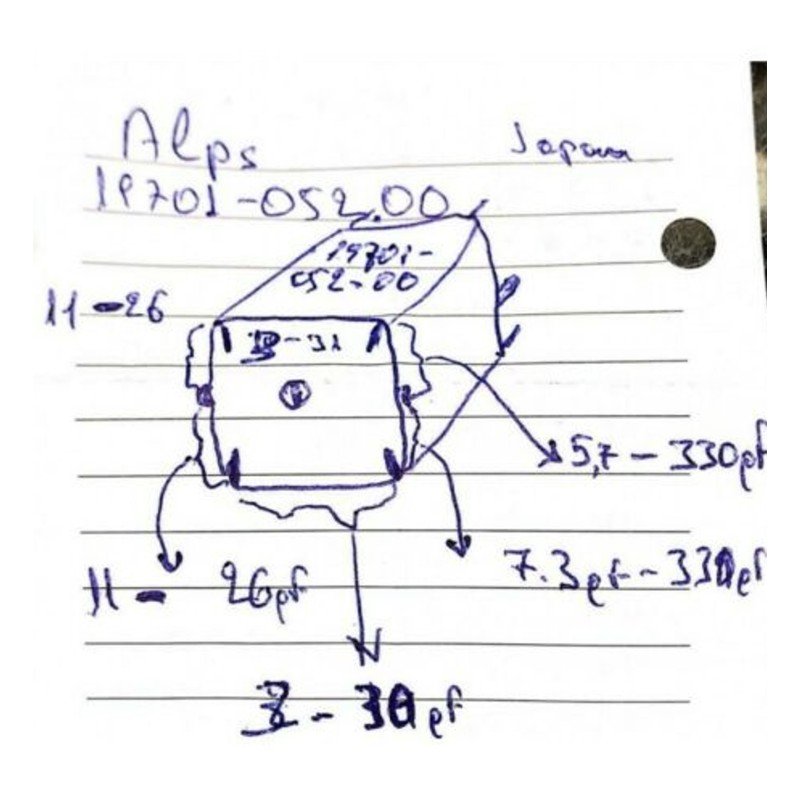 Alps Japan
19701-052.00
19701-
052-00
11-26
3-31
5,7-330pf
7.3pf-330pf
11- 26pf
3-30pf